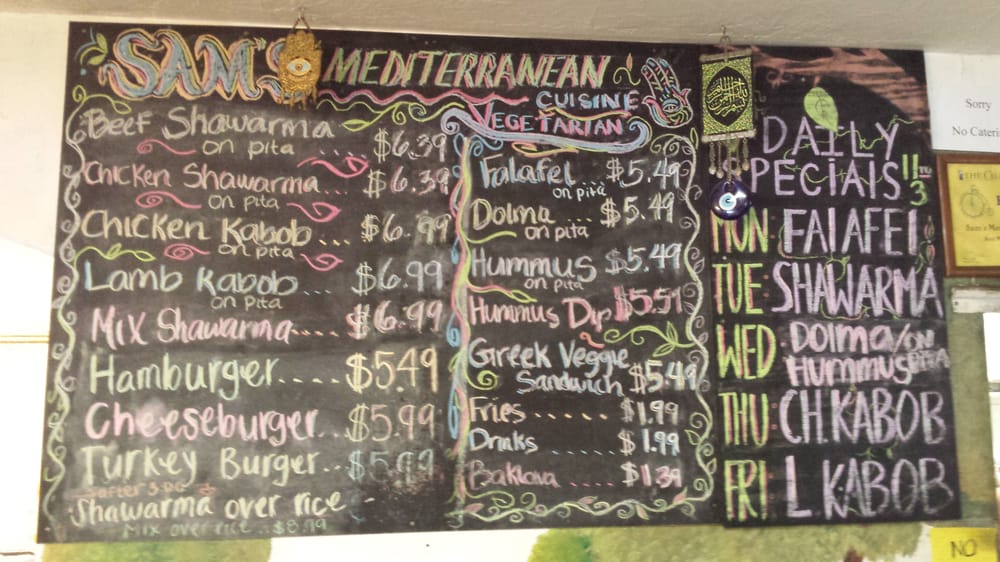 SAM'S MEDITERRANEAN
CUISINE
Beef Shawarma
on pita ... $6.39
Chicken Shawarma
on pita ... $6.39
Chicken Kabob ... $6.99
on pita
Lamb Kabob .... $6.99
on pita
Mix Shawarma.... $6.99
Hamburger.... $5.49
Cheeseburger.. $5.99
Turkey Burger.. $5.99
after 3:00
Shawarma over rice
Mix over rice .. $8.99
VEGETARIAN
Falafel $5.49
on pita
Dolma ... $5.49
on pita
Hummus $5.49
on pita
Hummus Dip $5.51
Greek Veggie
Sandwich $5.49
Fries ...... $1.99
Drinks ..... $1.99
Baklava .... $1.39
DAILY
SPECIALS 11 TO 3
MON: FALAFEL
TUE: SHAWARMA
WED: DOLMA/ON
HUMMUS PITA
THU: CH. KABOB
FRI: L. KABOB
Sorry
No Cateri
NO